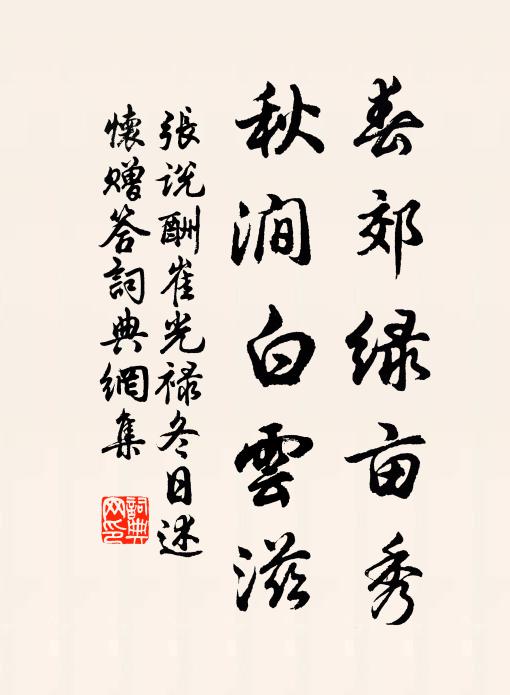 春郊绿亩秀
秋涧白雲滋
張説酬崔光禄冬日述
懷赠答詞典網集
詞典
网印